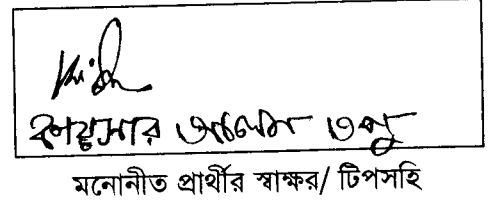 কায়সার আলম তপু
মনোনীত প্রার্থীর স্বাক্ষর/ টিপসহি